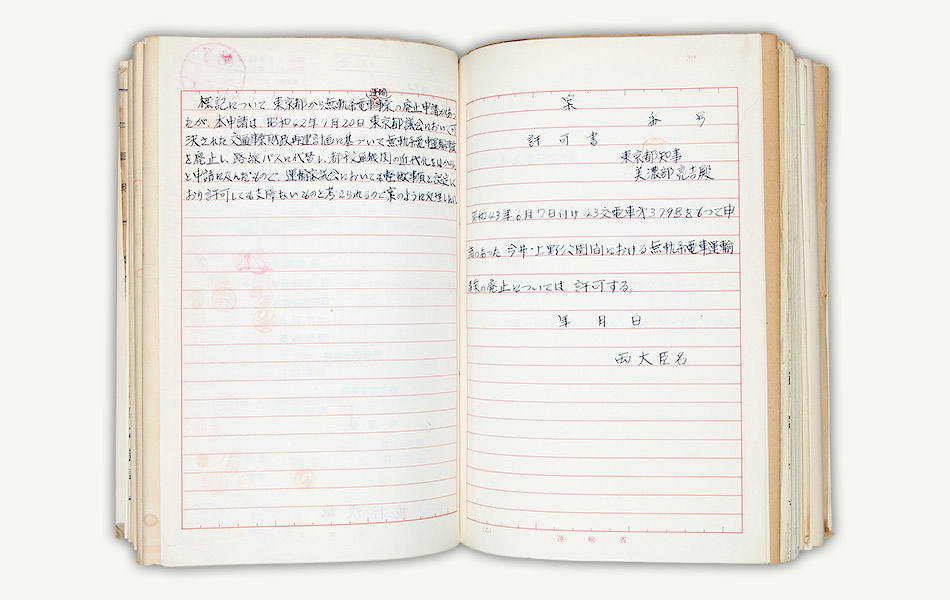 標記について東京都から無軌条電車運輸事業の廃止申請があっ
たが、本申請は、昭和42年7月20日東京都議会において可
決された交通事業財政再建計画に基づいて無軌条電車運輸事業
を廃止し、路線バスに代替し、都市交通機関の近代化をはからん
と申請に及んだもので、運輸審議会においても軽微事項と認定して
おり許可しても支障ないものと考えられるので案のように処理したい
案
番 号
許 可 書
東京都知事
美濃部亮吉殿
昭和43年6月7日付け43交電車第379号をもつて申
請のあった今井・上野公園間における無軌条電車運輸
事業の廃止については、許可する。
年 月 日
両大臣名
運輸省